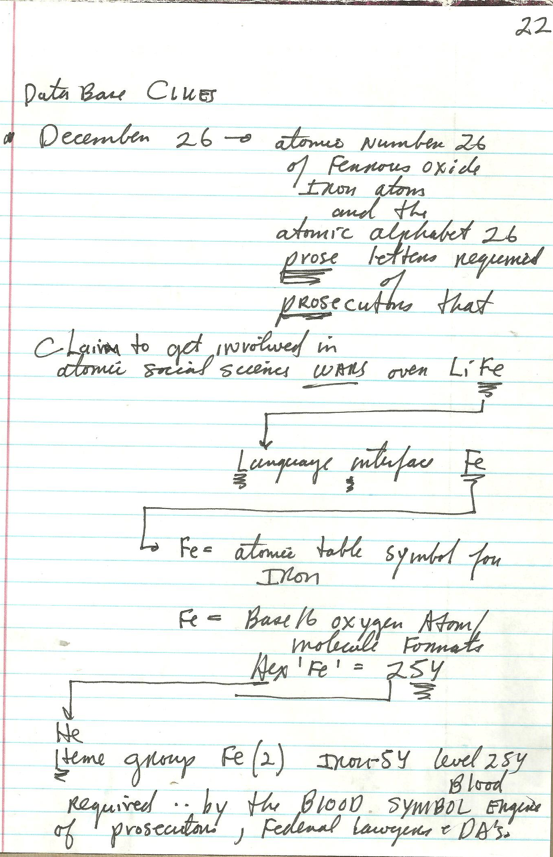 22
Data Base Clues
December 26 → atomic number 26
of Ferrous oxide
Iron atom
and the
atomic alphabet 26
prose letters required
of
prosecutors that
Claim to get involved in
atomic social science WARS over LiFe
Language interface Fe
Fe = atomic table symbol for
Iron
Fe = Base 16 oxygen Atom/
molecule Formats
Hex 'Fe' = 254
He
Heme group Fe(2) Iron-54 level 254
Blood
required .. by the BLOOD SYMBOL Engine
of prosecutors, Federal Lawyers & DA's.